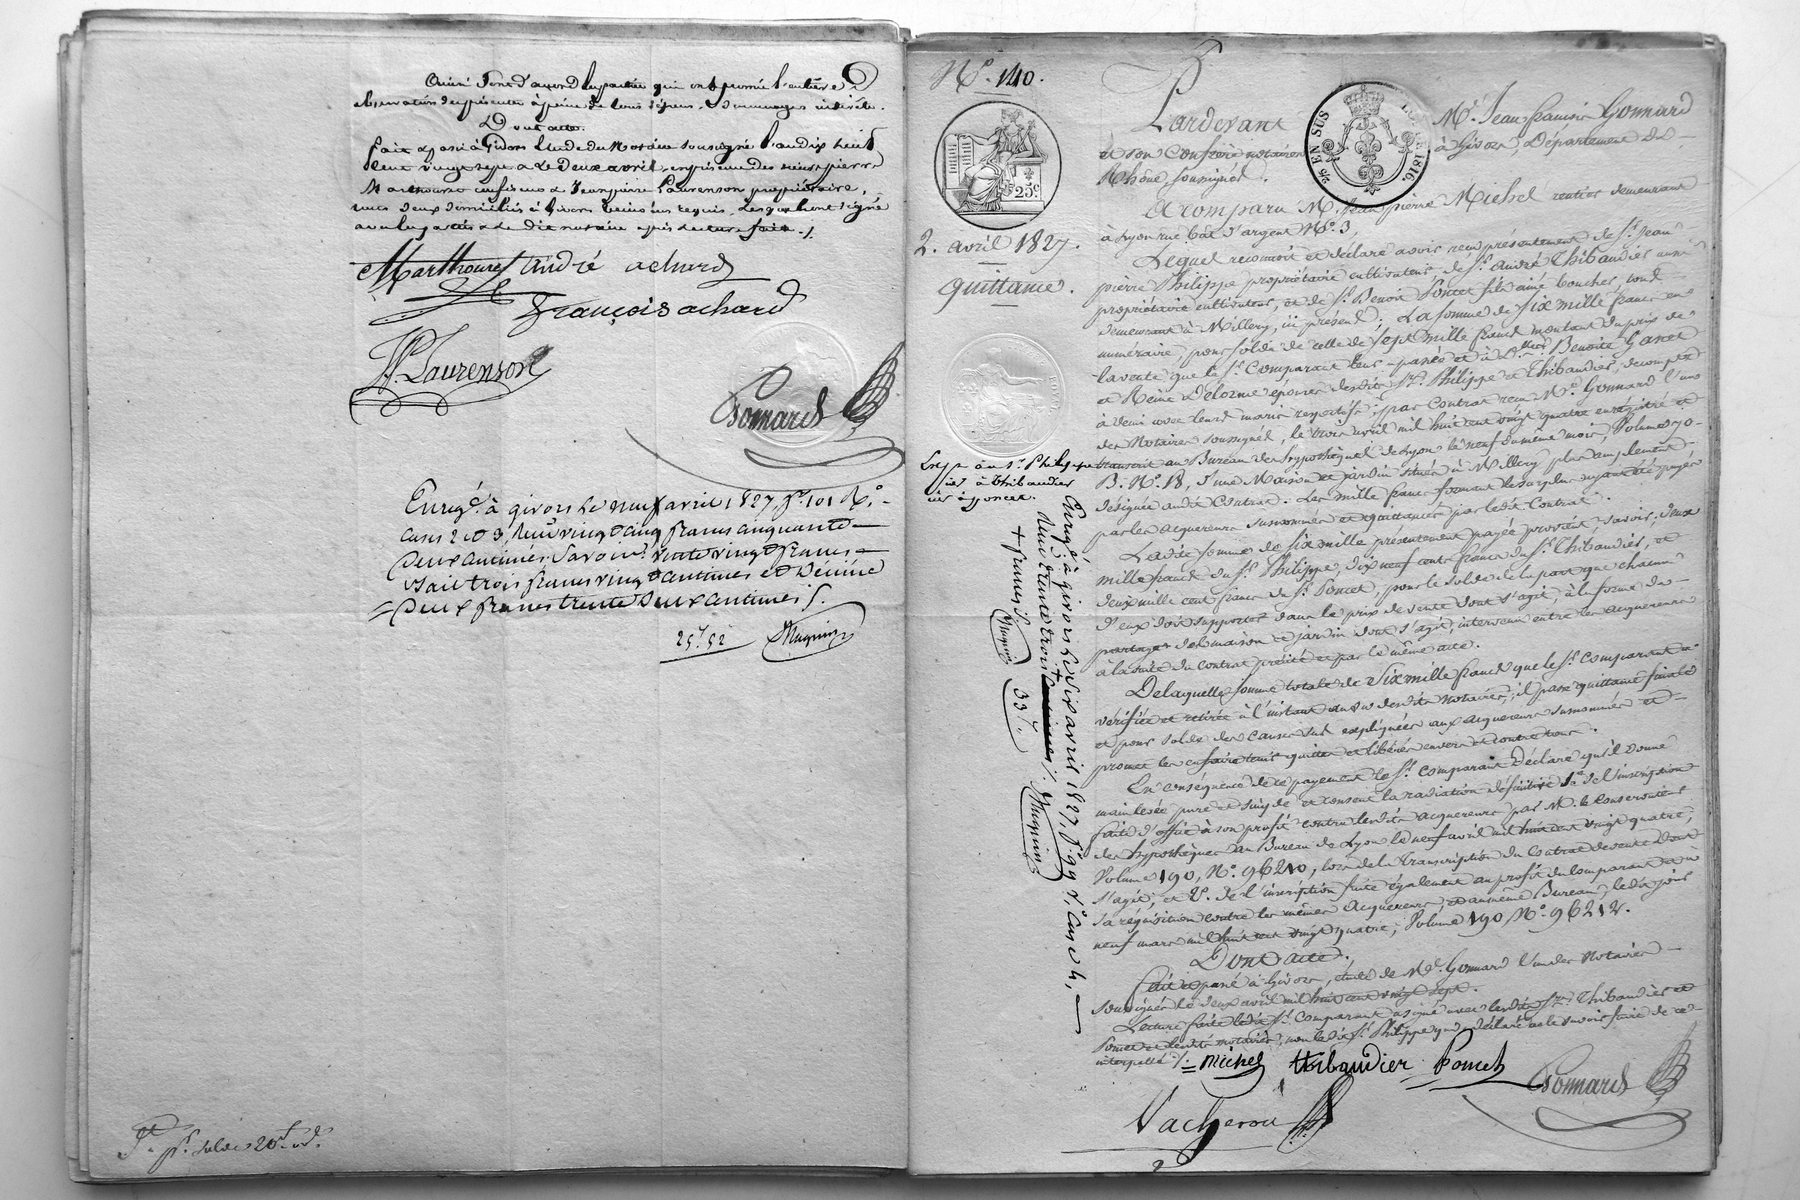 Ainsi sont d'accord les parties qui ont promis l'entière
observation des présentes à peine de tous dépens, dommages intérêts.
Dont acte.
Fait et passé à Givors Etude du Notaire soussigné l'an dix huit
cent vingt sept & le deux avril, en présence des sieurs pierre
Marthouret & Jean pierre Laurenson propriétaire,
tous deux domiciliés à Givors témoins requis, lesquels ont signé
avec les parties & le dit notaire après lecture faite ./.
Marthouret andré achard
françois achard
JP. Laurenson
Gonnard
Enregé. à givors le neuf avril 1827, fo. 101 Ro.
cases 2 et 3, Reçu vingt cinq francs cinquante
deux centimes, Savoir: vingt francs
trois francs vingt centimes et Décime
deux francs trente deux centimes ./.
25f. 52 Mugnier
No. 140.
25c.
2. avril 1827.
Quittance.
Expé. au sr. Philippe
id à Thibaudier
id à poncet.
EN SUS
1816.
Pardevant Me. Jean francois Gonnard
et son Confrère notaires à Givors, Département du
Rhône soussignés.
A comparu M. Jean pierre Michel rentier demeurant
à Lyon rue Bât d'argent No. 3,
Lequel reconnoit et déclare avoir reçu présentement de Sr. Jean
pierre Philippe propriétaire cultivateur, de Sr. André Thibaudier aussi
propriétaire cultivateur, et de Sr. Benoit Poncet fils ainé boucher, tous
demeurant à Millery, ici présents; La somme de Six mille francs en
numéraire, pour solde de celle de Sept mille francs montant du prix de
la vente que le Sr. Comparant leur a passée et à Dmes. Benoite Garet
et Reine Delorme épouses desdits Srs. Philippe et Thibaudier, de compte
à demi avec leurs maris respectifs, par Contrat reçu Me. Gonnard l'un
des Notaires soussignés, le trois avril mil huit cent vingt quatre enregistré et
transcrit au Bureau des hypothèques de Lyon le neuf du même mois, Volume 90
B. No. 18, d'une Maison et jardin situés à Millery plus amplement
désignés audit Contrat. Les mille francs formant le surplus ayant été payés
par les acquereurs susnommés et quittancés par ledit Contrat.
Ladite somme de Six mille présentement payée provient savoir, deux
mille francs du Sr. Philippe, dix neuf cents francs du Sr. Thibaudier, et
deux mille cent francs du Sr. Poncet, pour le solde de la part que chacun
d'eux doit supporter dans le prix de vente dont s'agit, à la forme du
partage de la maison et jardin dont s'agit, intervenu entre les acquereurs
à la suite du contrat précité et par le même acte.
De laquelle somme totale de Six mille francs que le Sr. comparant a
vérifiée et retirée à l'instant au vu desdits Notaires, il passe quittance finale
et pour solde des causes sus expliquées aux acquereurs susnommés et
promet les en faire tenir quittes et libérés envers et contre tous.
En conséquence de ce payement le Sr. comparant déclare qu'il donne
main levée pure et simple et consent la radiation définitive 1o. de l'inscription
faite d'office à son profit contre lesdits acquereurs par M. le Conservateur
des hypothèques au Bureau de Lyon le neuf avril mil huit cent vingt quatre,
Volume 190, No. 96210, lors de la transcription du Contrat de vente dont
s'agit; et 2o. de l'inscription faite également au profit du comparant et à
sa réquisition contre les mêmes acquereurs, et au même Bureau, ledit jour
neuf mars mil huit cent vingt quatre, Volume 190 No. 96212.
Dont acte.
Fait et passé à Givors, étude de Me. Gonnard l'un des Notaires
soussignés le deux avril mil huit cent vingt sept.
Lecture faite ledit Sr. comparant a signé avec lesdits Srs. Thibaudier et
Poncet et lesdits notaires, non ledit Sr. Philippe qui a déclaré ne le savoir faire de ce
interpellé ./. michel thibaudier Poncet
Gonnard
Vacheron
Enregé. à givors le six avril 1827 fo. 99 Vo. Case 4,
Reçu trente trois + ./. Mugnier
+ francs ./. Mugnier 33f.